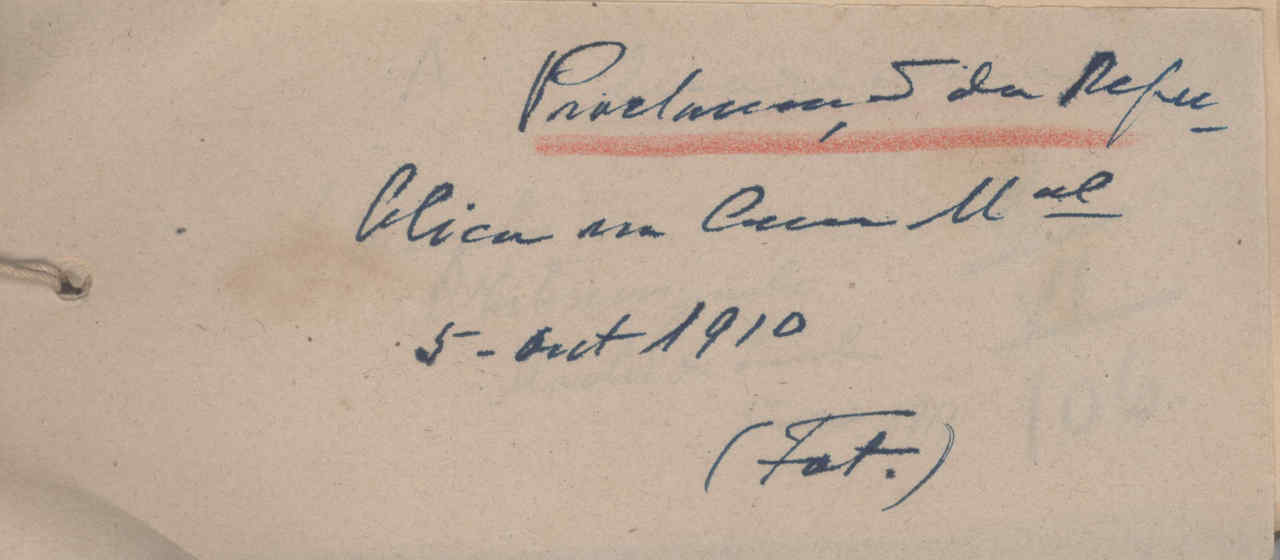 Proclamação da Repu-
blica na Cam M.al
5 - out 1910
(Fot.)